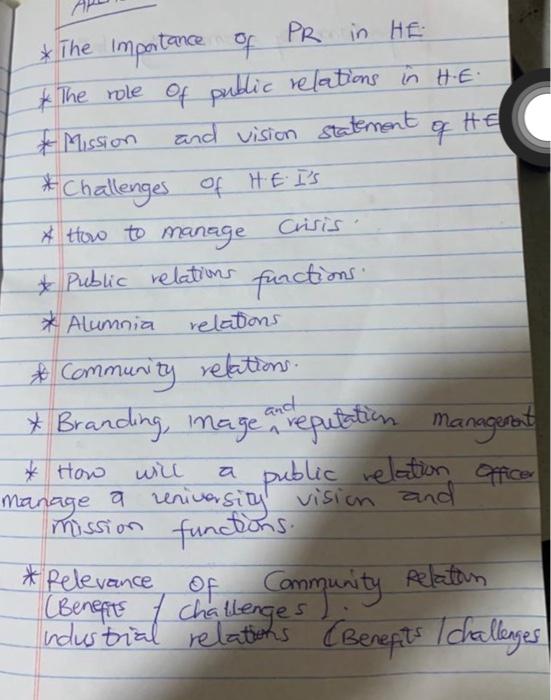 * The Impotance of PR in HE.
* The role of public relations in H.E.
* Mission and vision statement of HE
* Challenges of H.E.I's
* How to manage Crisis.
* Public relations functions.
* Alumnia relations
* Community relations.
* Branding, image and reputation management
* How will a public relation officer
manage a university vision and
mission functions.
* Relevance of Community Relation
(Benefits / challenges).
industrial relations (Benefits / challenges